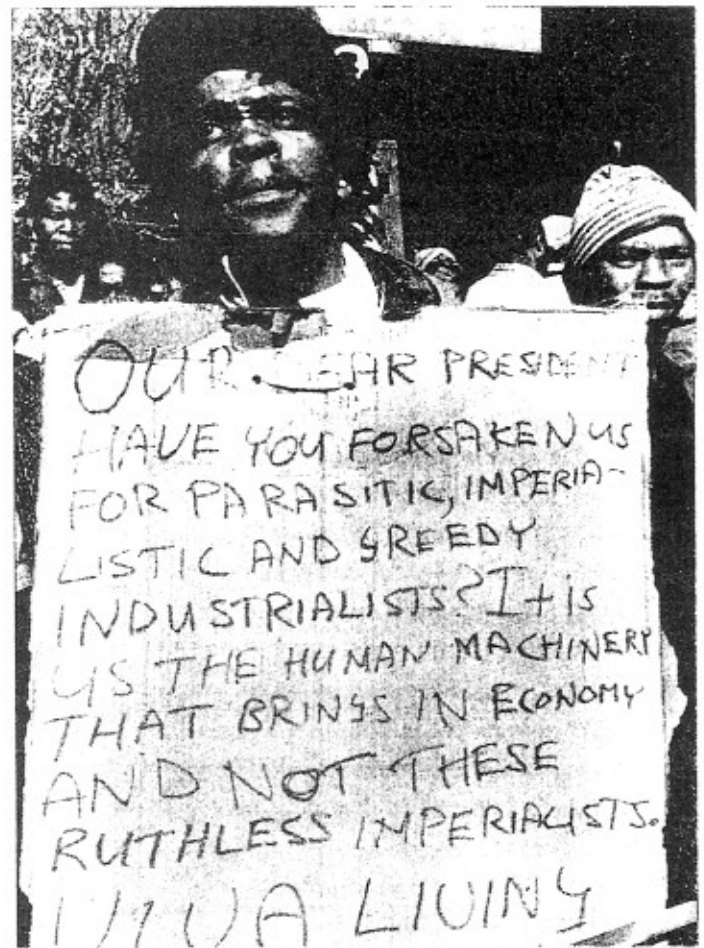 OUR DEAR PRESIDENT
HAVE YOU FORSAKEN US
FOR PARASITIC, IMPERIA-
LISTIC AND GREEDY
INDUSTRIALISTS? It is
US THE HUMAN MACHINERY
THAT BRINGS IN ECONOMY
AND NOT THESE
RUTHLESS IMPERIALISTS.
VIVA LIVING